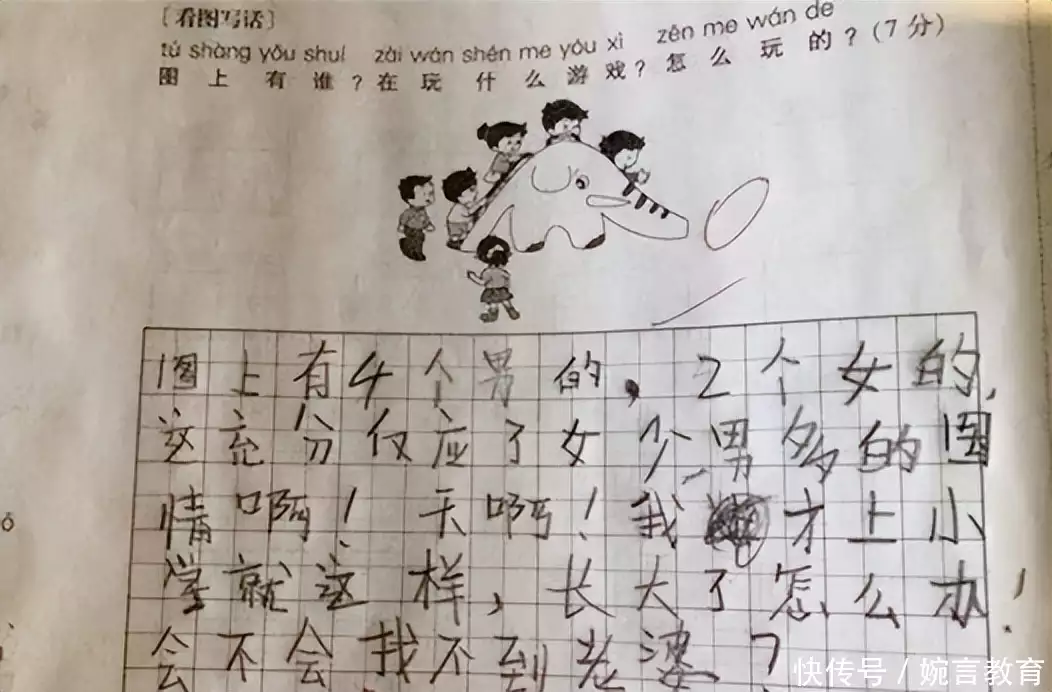 〔看图写话〕
tú shàng yǒu shuí zài wán shén me yóu xì zěn me wán de
图上有谁？在玩什么游戏？怎么玩的？(7分)
图上有4个男的，2个女的，
这充分仅应了女少男多的国
情啊！天啊！我才上小
学就这样，长大了怎么办！
会不会找不到老婆？
快传号/婉言教育